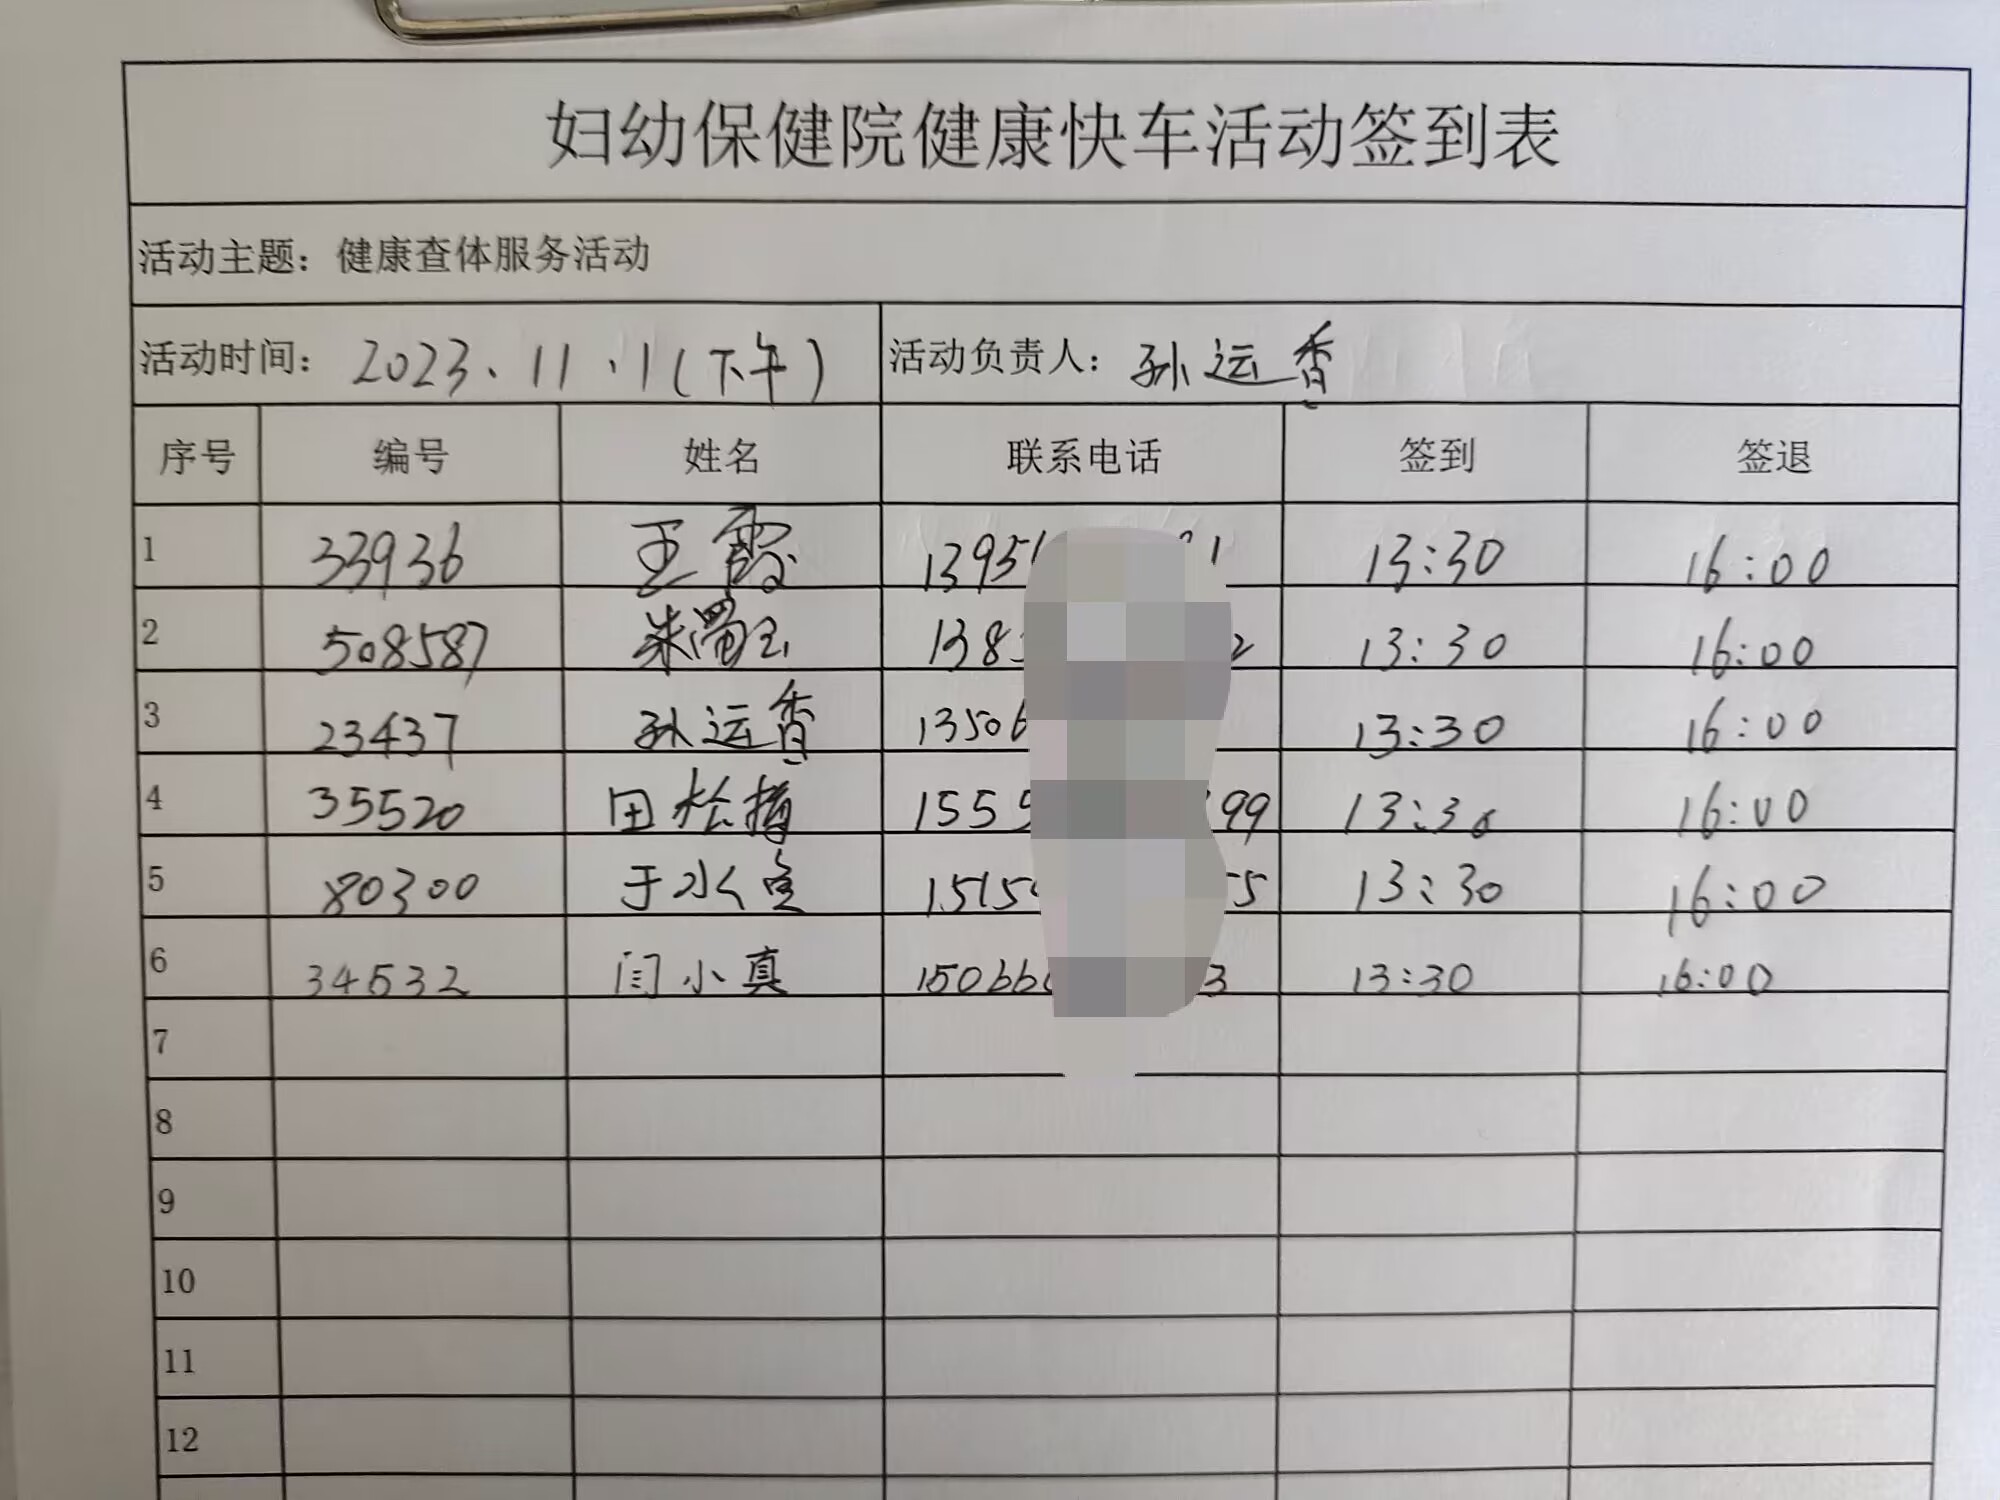 妇幼保健院健康快车活动签到表
活动主题：健康查体服务活动
活动时间：2023.11.1（下午） 活动负责人：孙运香
序号 编号 姓名 联系电话 签到 签退
1 33936 王霞 1395 1 13:30 16:00
2 508587 朱蜀玉 138 2 13:30 16:00
3 23437 孙运香 1350 13:30 16:00
4 35520 田 1555 99 13:30 16:00
5 80300 于水 1515 5 13:30 16:00
6 34532 闫小真 15066 3 13:30 16:00
7
8
9
10
11
12